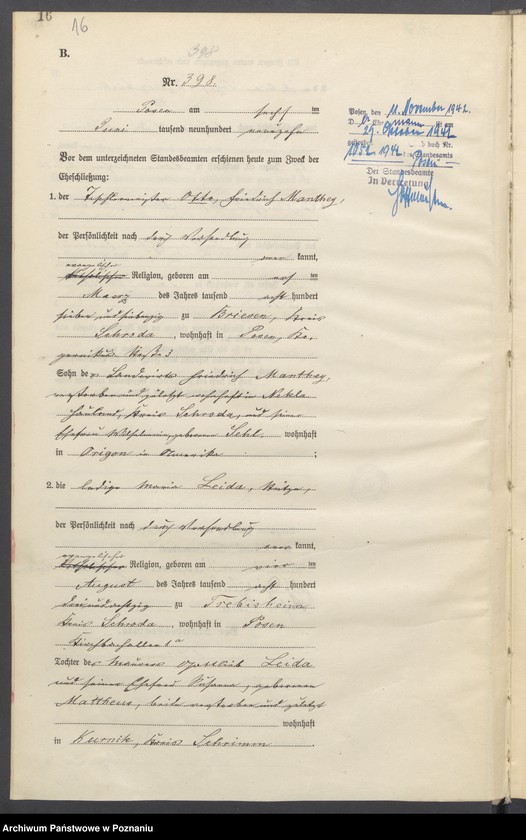 16
16
B.
398
Nr. 398.
Posen am sechs ten
Juni tausend neunhundert neunzehn
Vor dem unterzeichneten Standesbeamten erschienen heute zum Zweck der
Eheschließung:
1. der Tischlermeister Otto, Friedrich Manthey,
der Persönlichkeit nach durch Verhandlung
aner kannt,
evangelischer
katholischer Religion, geboren am elf ten
März des Jahres tausend acht hundert
sieben und siebenzig zu Briesen, Kreis
Schroda, wohnhaft in Posen,
Straße 3
Sohn des Landwirts Friedrich Manthey,
verstorben und zuletzt wohnhaft in Nekla
Hauland, Kreis Schroda, und seiner
Ehefrau Wilhelmine, geborenen wohnhaft
in Origon in Amerika ;
2. die ledige Maria Leida, Stütze,
der Persönlichkeit nach durch Verhandlung
aner kannt,
evangelischer
katholischer Religion, geboren am vier ten
August des Jahres tausend acht hundert
drei und achtzig zu Trebisheim
Kreis Schroda, wohnhaft in Posen
Kirchbachallee
Tochter des Maurers Gottlieb Leida
und seiner Ehefrau Susanna, geborenen
Mattheus, beide verstorben und zuletzt
wohnhaft
in Kurnik, Kreis Schrimm .
Posen, den 11. November 1942
D Ehemann ist am
29. Oktober 1942
1052/1942 Posen
Der Standesbeamte
In Vertretung
Archiwum Państwowe w Poznaniu